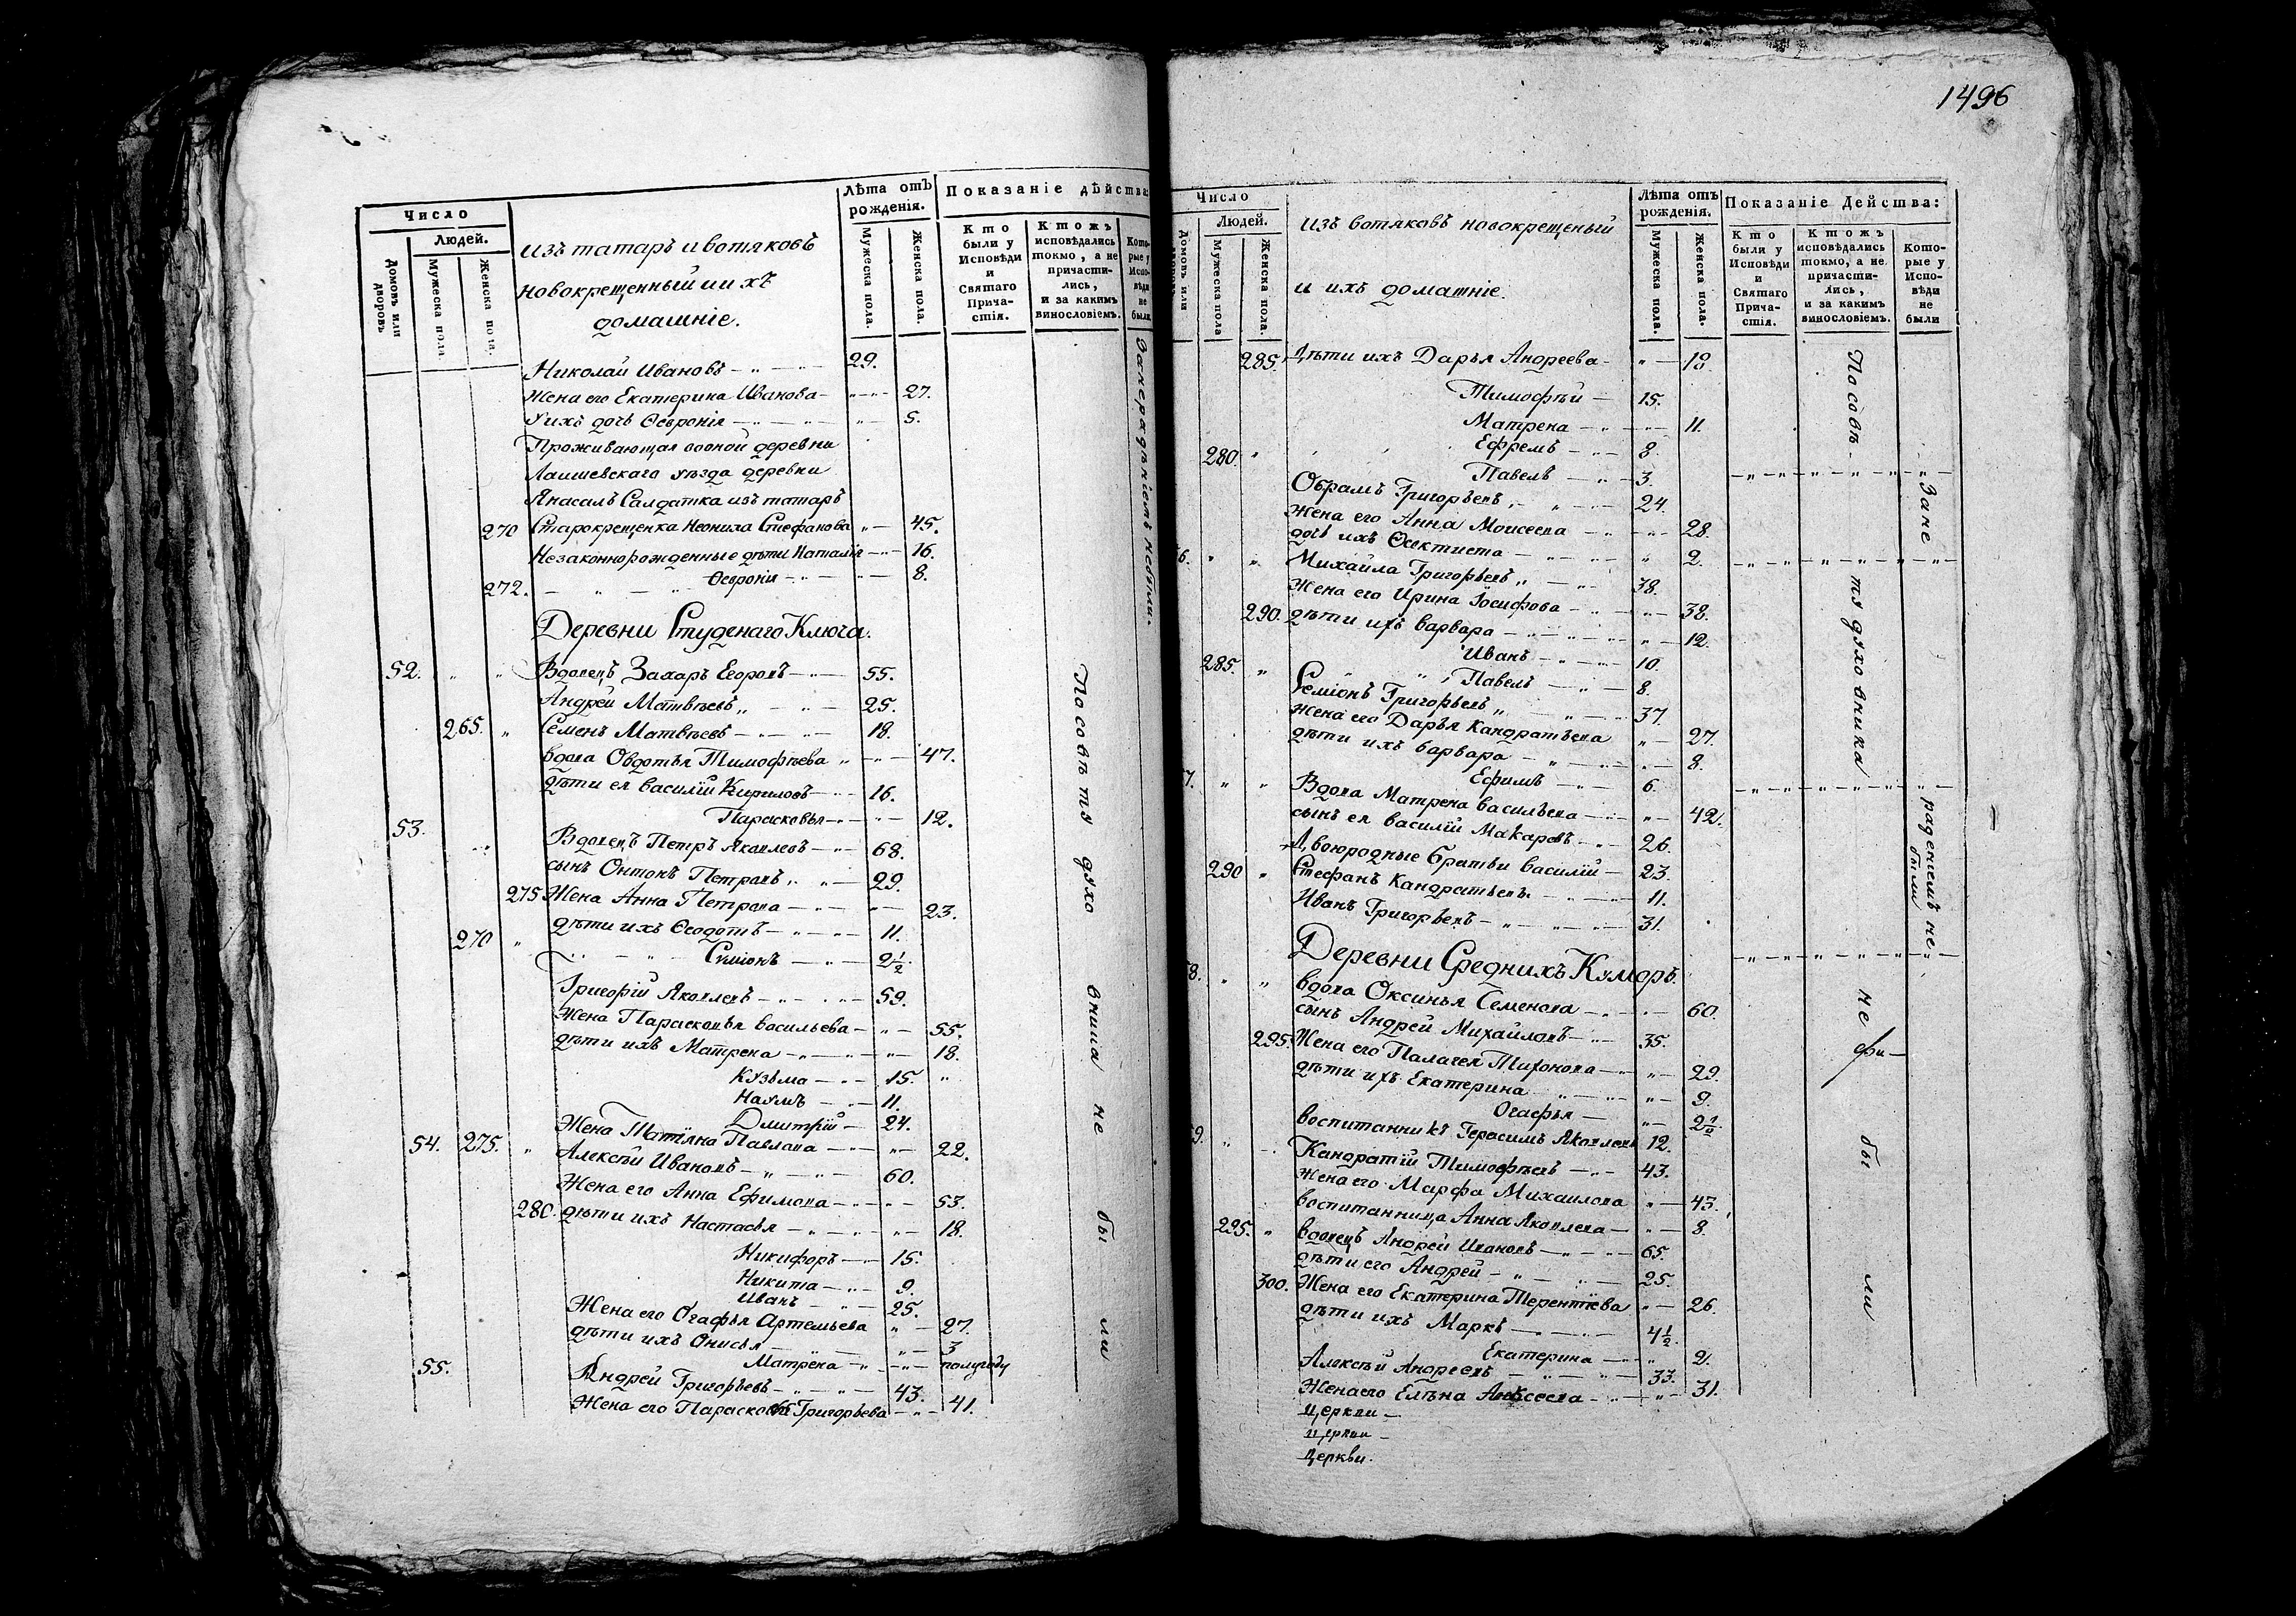 1496
Число
Людей.
Домовъ или дворовъ
Мужеска пола.
Женска пола.
Изъ татаръ и вотяковъ
новокрещенный и ихъ
домашніе.
Лѣта отъ рожденія.
Мужеска пола.
Женска пола.
Показаніе дѣйства:
Кто были у Исповѣди и Святаго Причастія.
Ктожъ исповѣдались токмо, а не причастились, и за какимъ винословіемъ.
Которые у Исповѣди не были.
Николай Ивановъ 29.
Жена его Екатерина Иванова 27.
У ихъ дочь Ѳевронія 5.
Проживающая воной деревни
Лаишевскаго уѣзда деревни
Янасалъ Салдатка изъ татаръ
270 Старокрещенка Неонила Стефанова 45.
Незаконнорожденные дѣти Наталія 16.
272. Ѳевронія 8.
Деревни Студенаго Ключа.
52. Вдовецъ Захаръ Егоровъ 55.
Андрей Матвѣевъ 25.
265. Семенъ Матвѣевъ 18.
вдова Овдотья Тимофѣева 47.
дѣти ея Василій Кириловъ 16.
Парасковья 12.
53. Вдовецъ Петръ Яковлевъ 68.
сынъ Онтонъ Петровъ 29.
275 Жена Анна Петрова 23.
дѣти ихъ Ѳеодотъ 11.
270 Симіонъ 2½.
Григорій Яковлевъ 59.
Жена Парасковья Васильева 55.
дѣти ихъ Матрена 18.
Кузьма 15.
Наумъ 11.
Дмитрій 24.
Жена Татіяна Павлова 22.
54. 275. Алексѣй Ивановъ 60.
Жена его Анна Ефимова 53.
280. дѣти ихъ Настасья 18.
Никифоръ 15.
Никита 9.
Иванъ 25.
Жена его Огафья Артемьева 27.
дѣти ихъ Онисья 3
Матрена полугоду
55. Андрей Григорьевъ 43.
Жена его Парасковья Григорьева 41.
По совѣту духовника не были
Занерадѣніемъ небыли.
Число
Людей.
Домовъ или
Мужеска пола
Женска пола.
Изъ вотяковъ новокрещеный
и ихъ домашніе.
Лѣта отъ рожденія.
Мужеска пола.
Женска пола.
Показаніе Дѣйства:
Кто были у Исповѣди и Святаго Причастія.
Ктожъ исповѣдались токмо, а не причастились, и за какимъ винословіемъ.
Которые у Исповѣди не были
285. Дѣти ихъ Дарья Андреева 18.
Тимофѣй 15.
Матрена 11.
Ефремъ 8.
280. Павелъ 3.
Обрамъ Григорьевъ 24.
Жена его Анна Моисеева 28.
дочь ихъ Ѳектиста 2.
6. Михайла Григорьевъ 38.
Жена его Ирина Іосифова 38.
290. дѣти ихъ варвара 12.
Иванъ 10.
285. Павелъ 8.
Семіонъ Григорьевъ 37.
Жена его Дарья Кандратьева 27.
дѣти ихъ варвара 8.
Ефимъ 6.
7. Вдова Матрена Васильева 42.
сынъ ея василій Макаровъ 26.
Двоюродные братьи василій 23.
290 Стефанъ Кандратьевъ 11.
Иванъ Григорьевъ 31.
Деревни Среднихъ Куморъ.
8. вдова Оксинья Семенова 60.
сынъ Андрей Михайловъ 35.
295. Жена его Палагея Тихонова 29.
дѣти ихъ Екатерина 9.
Огафья 2½.
воспитанникъ Герасимъ Яковлевъ 12.
9. Кандратій Тимофѣевъ 43.
Жена его Марфа Михаилова 43.
воспитанница Анна Яковлева 8.
295. вдовецъ Андрей Ивановъ 65.
дѣти его Андрей 25.
300. Жена его Екатерина Терентіева 26.
дѣти ихъ Маркъ 4½.
Екатерина 2.
Алексѣй Андреевъ 33.
Жена его Елѣна Алексеева 31.
Церкви
Церкви
Церкви.
По совѣту духовника не бы ли
Зане радениемъ не были